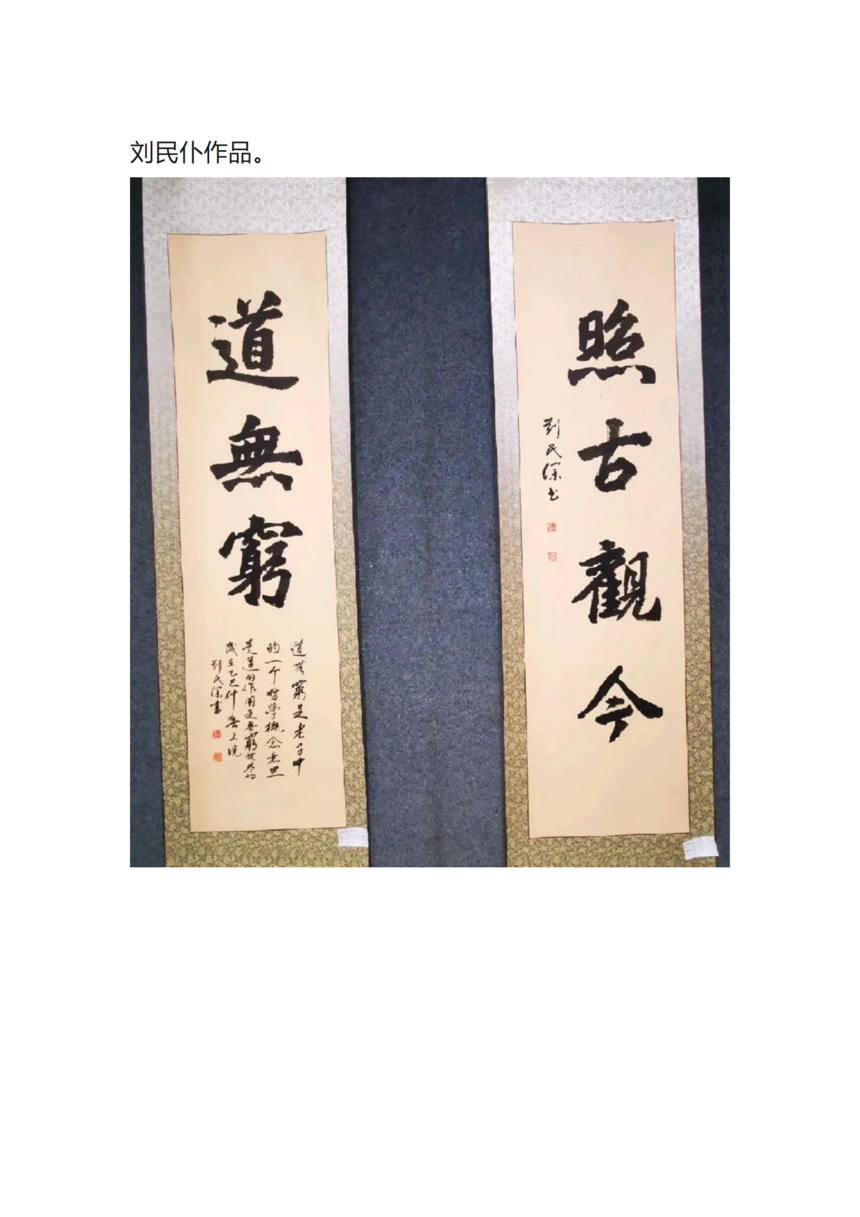 刘民仆作品。
照古觀今
劉民深书
道無窮
道无窮是老子中
的一个哲學概念意思
是道的作用是無窮無尽的
歲在乙巳仲春上浣
劉民深書